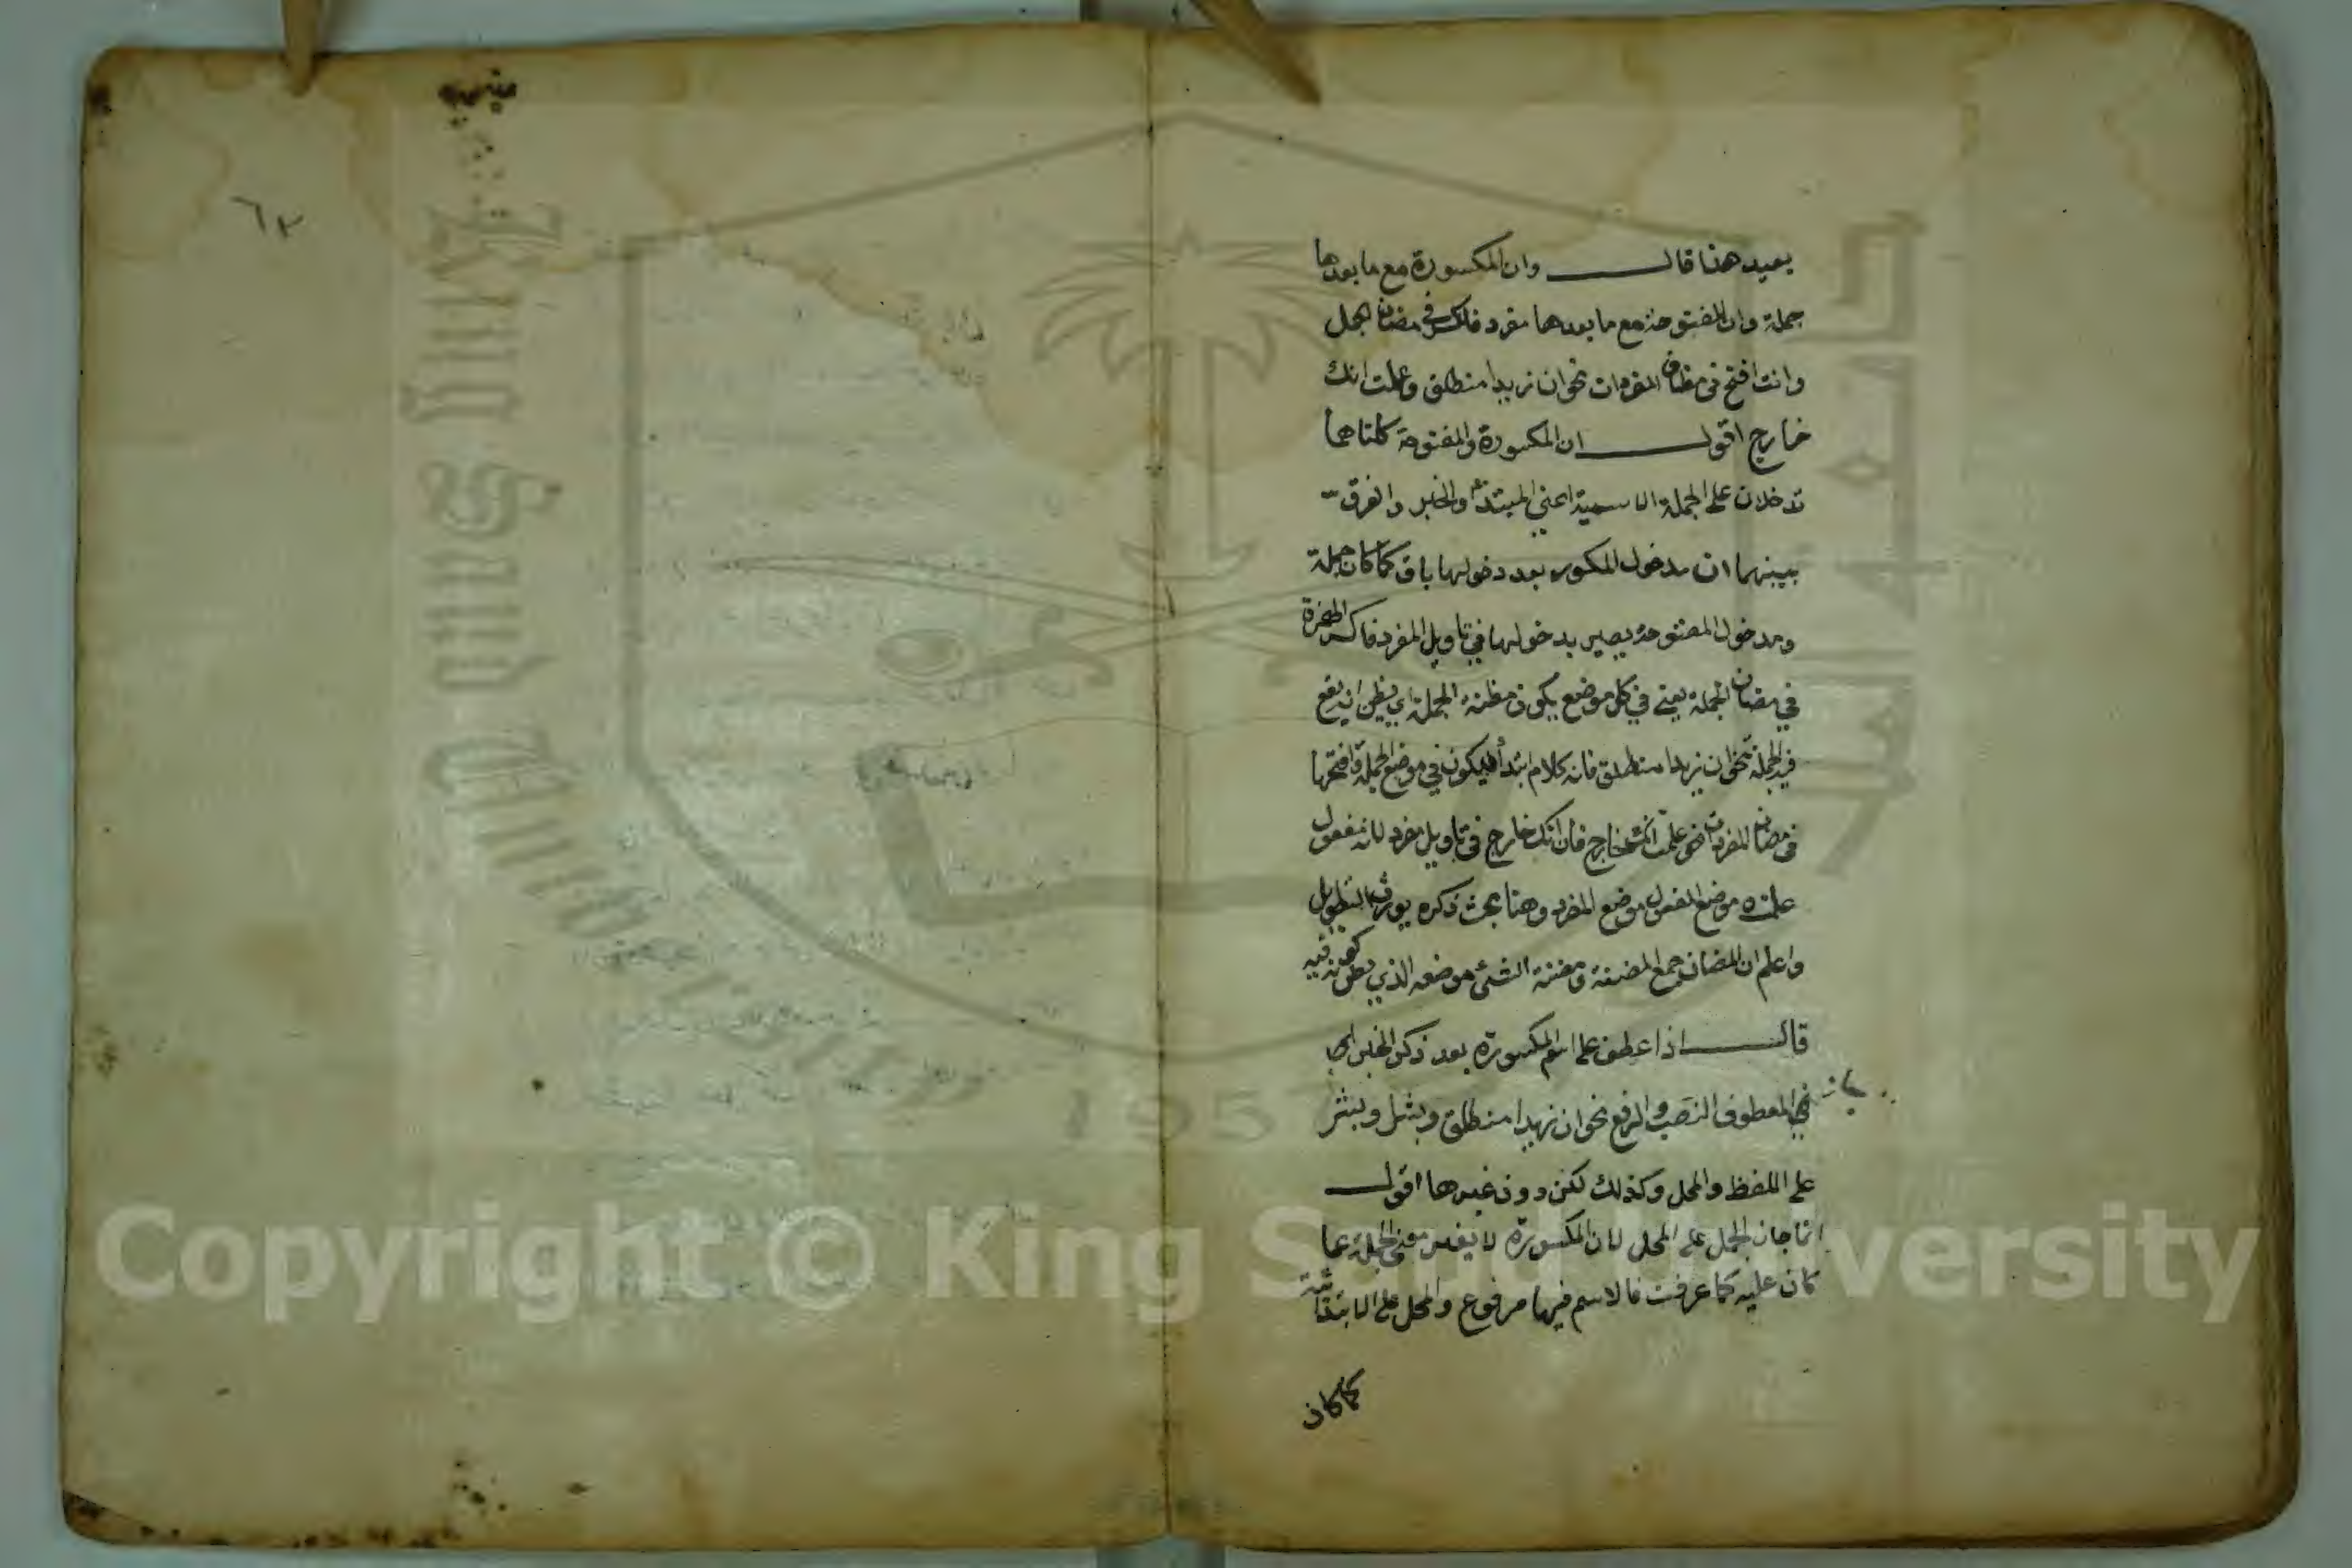 بعيد هنا قال وان المكسورة مع ما بعدها
جملة وان المفتوحة مع ما بعدها مفرد فاكسر في مضان الجمل
وانت افتح في مظان المفردات نحو ان زيدا منطلق وعلمت انك
خارج اقول ان المكسورة والمفتوحة كلتاهما
تدخلان على الجملة الاسمية اعني المبتدأ والخبر والفرق
بينهما ان مدخول المكسوره بعد دخولها باق كما كان جملة
ومدخول المفتوحة يصير بدخولها في تاويل المفرد فاكسر الهمزة
في مضان الجملة يعني في كل موضع يكون مظنة الجملة اي يظن انه يقع
فيه الجملة نحو ان زيدا منطلق فانه كلام ابتدأ فيكون في موضع الجملة وافتحها
في مضان المفردات نحو علمت انك خارج فان انك خارج في تاويل مفرد لانه مفعول
علمت موضع المفعول موضع المفرد وهنا بحث ذكره يورث التطويل
واعلم ان المضان جمع المضنة ومضنة الشئ موضعه الذي يظن كونه فيه
قال اذا عطف على اسم المكسورة بعد ذكر الخبر
في المعطوف النصب والرفع نحو ان زيدا منطلق وبشرا وبشر
على اللفظ والمحل وكذلك لكن دون غيرها اقول
انما جاز الحمل على المحل لان المكسورة لا يغير معنى الجملة عما
كان عليه كما عرفت فالاسم فيها مرفوع والمحل على الابتدائية
كما كان
٦٢
Copyright © King Saud University
King Saud University
1957